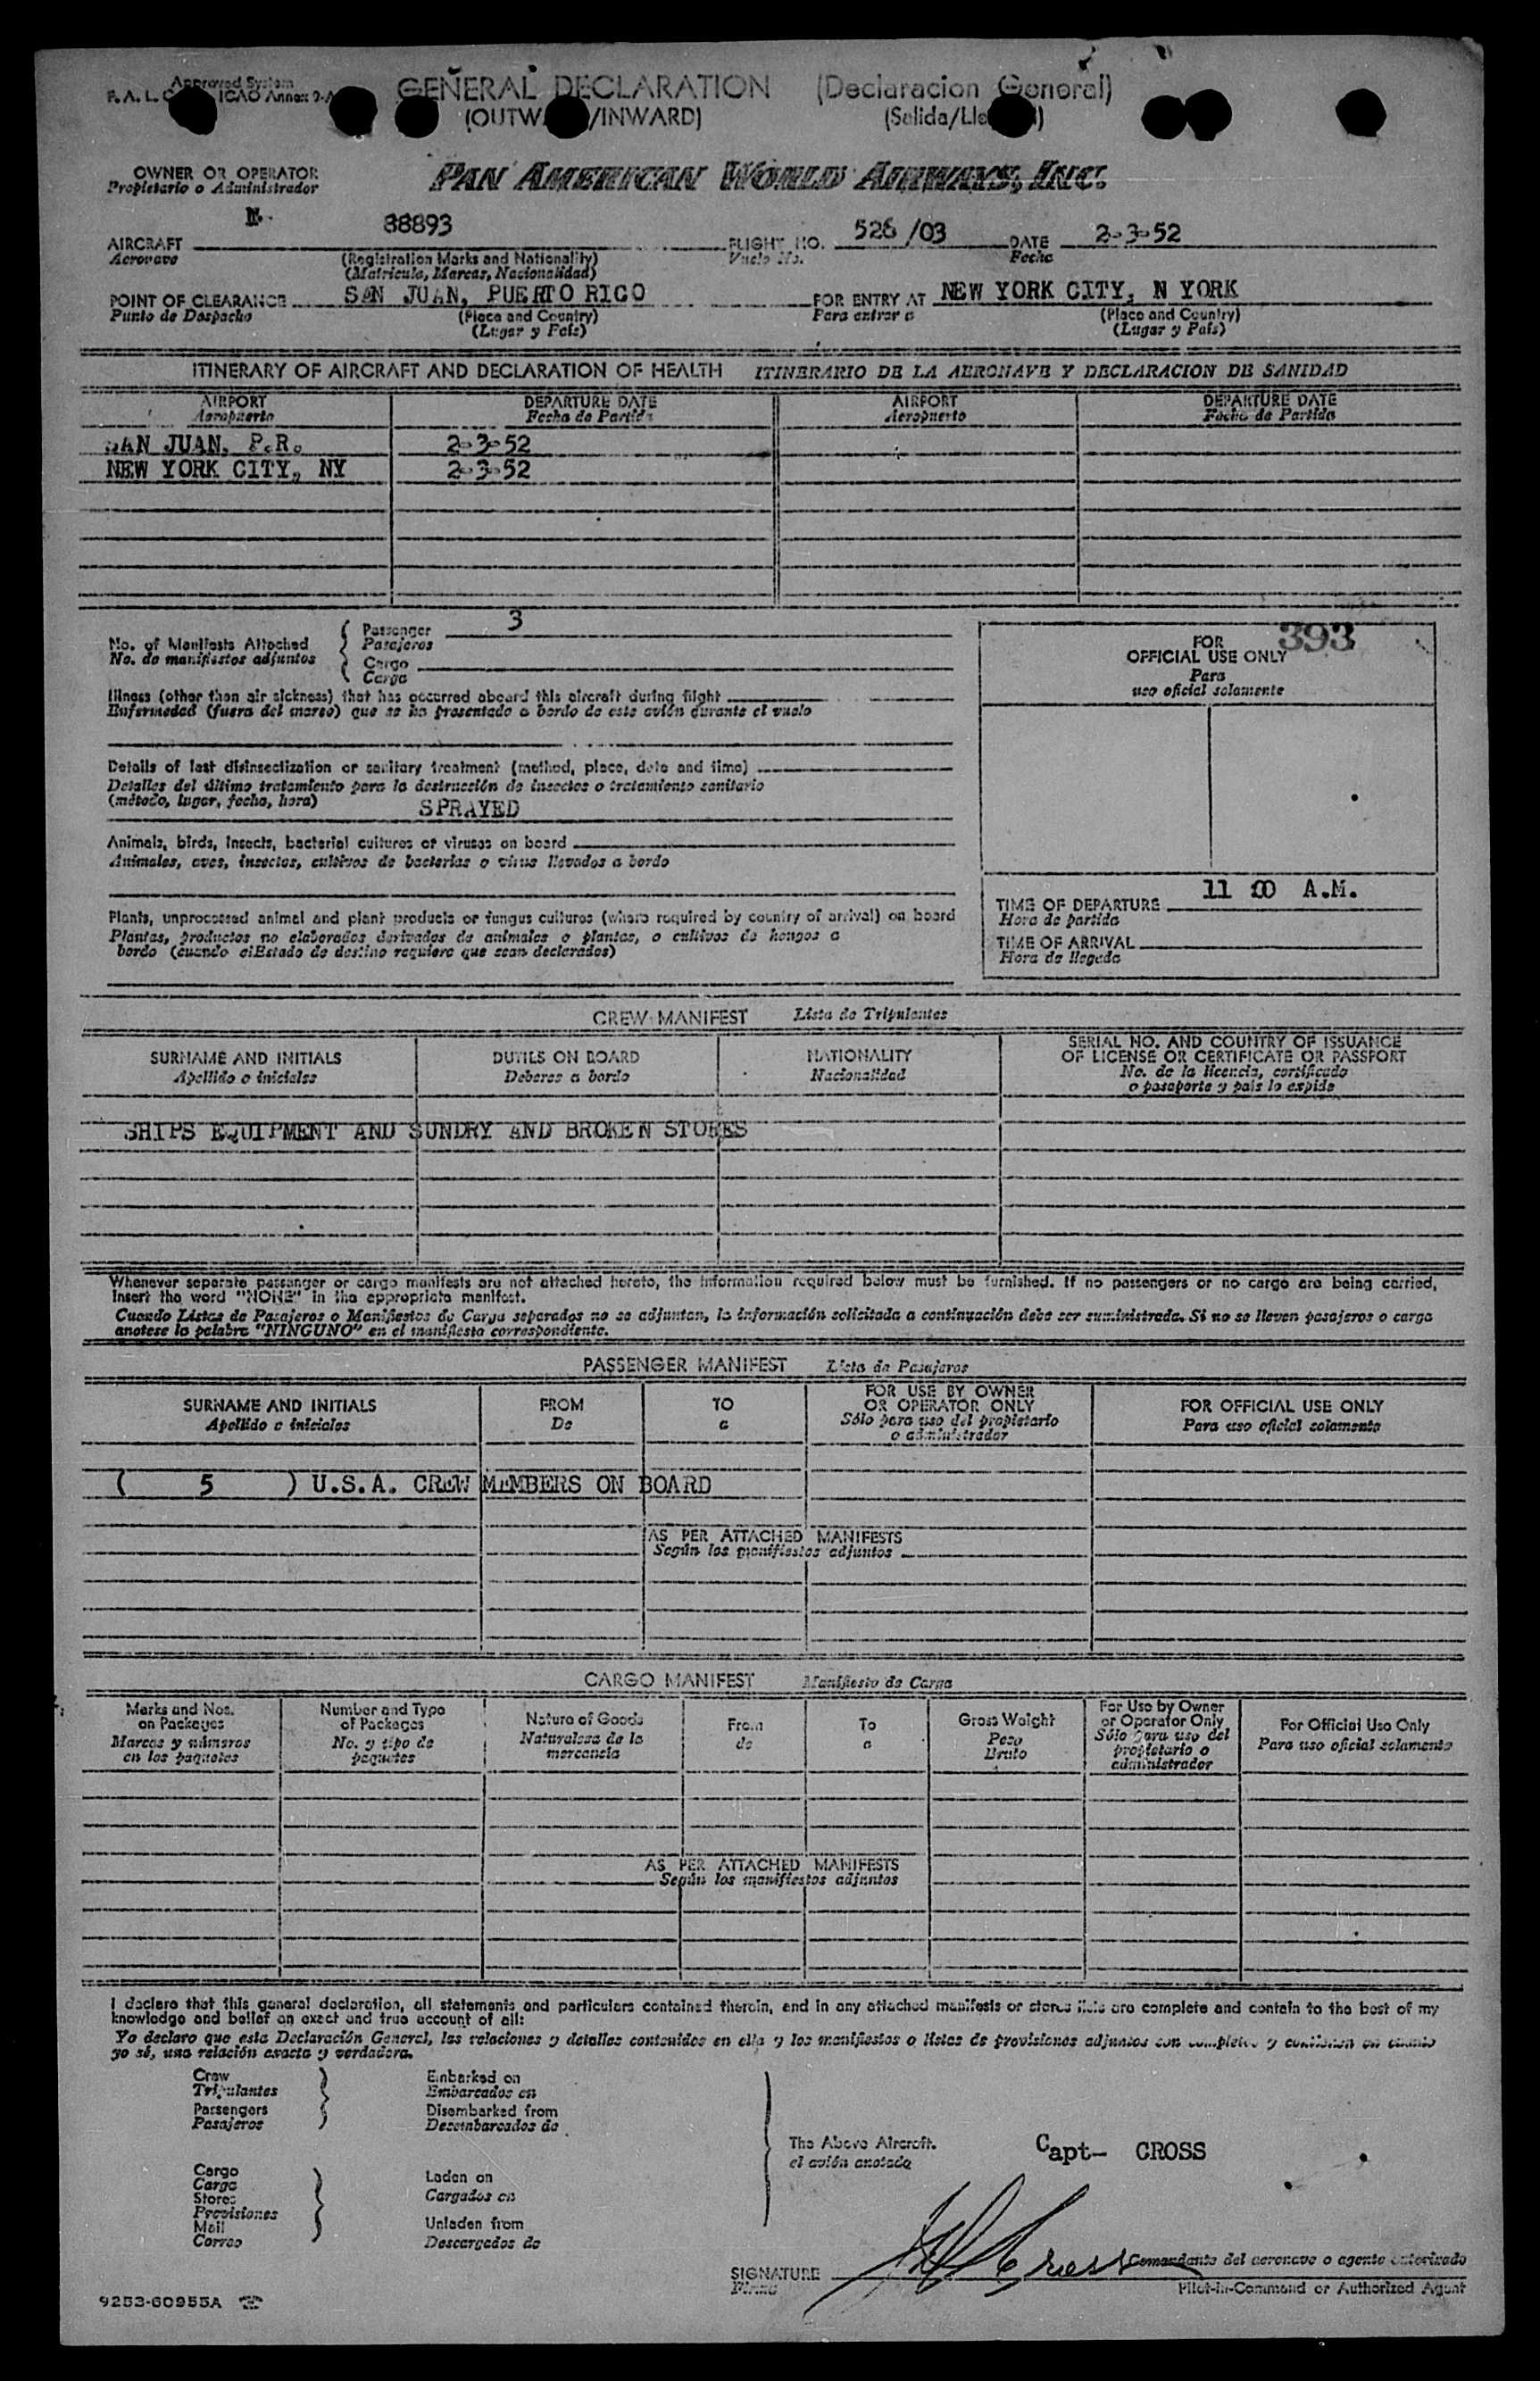 Approved System
GENERAL DECLARATION (Declaracion General)
F. A. L. ICAO Annex 9-A
(OUTWARD/INWARD) (Salida/Llegada)
OWNER OR OPERATOR PAN AMERICAN WORLD AIRWAYS, INC.
Propietario o Administrador
N- 88893 526 /03 2-3-52
AIRCRAFT FLIGHT NO. DATE
Aeronave (Registration Marks and Nationality) Vuelo No. Fecha
(Matricula, Marcas, Nacionalidad)
SAN JUAN, PUERTO RICO NEW YORK CITY, N YORK
POINT OF CLEARANCE FOR ENTRY AT
Punto de Despacho (Place and Country) Para entrar a (Place and Country)
(Lugar y País) (Lugar y País)
ITINERARY OF AIRCRAFT AND DECLARATION OF HEALTH ITINERARIO DE LA AERONAVE Y DECLARACION DE SANIDAD
AIRPORT DEPARTURE DATE AIRPORT DEPARTURE DATE
Aeropuerto Fecha de Partida Aeropuerto Fecha de Partida
SAN JUAN, P.R. 2-3-52
NEW YORK CITY, NY 2-3-52
No. of Manifests Attached
No. de manifiestos adjuntos
Passenger 3
Pasajeros
Cargo
Carga
FOR 393
OFFICIAL USE ONLY
Para
uso oficial solamente
Illness (other than air sickness) that has occurred aboard this aircraft during flight
Enfermedad (fuera del mareo) que se ha presentado a bordo de este avión durante el vuelo
Details of last disinsectization or sanitary treatment (method, place, date and time)
Detalles del último tratamiento para la destrucción de insectos o tratamiento sanitario
(método, lugar, fecha, hora) SPRAYED
Animals, birds, insects, bacterial cultures or viruses on board
Animales, aves, insectos, cultivos de bacterias o virus llevados a bordo
Plants, unprocessed animal and plant products or fungus cultures (where required by country of arrival) on board
Plantas, productos no elaborados derivados de animales o plantas, o cultivos de hongos a
bordo (cuando el Estado de destino requiere que sean declarados)
11 00 A.M.
TIME OF DEPARTURE
Hora de partida
TIME OF ARRIVAL
Hora de llegada
CREW MANIFEST Lista de Tripulantes
SURNAME AND INITIALS DUTIES ON BOARD NATIONALITY SERIAL NO. AND COUNTRY OF ISSUANCE
OF LICENSE OR CERTIFICATE OR PASSPORT
Apellido o iniciales Deberes a bordo Nacionalidad No. de la licencia, certificado
o pasaporte y país lo expide
SHIPS EQUIPMENT AND SUNDRY AND BROKEN STORES
Whenever separate passenger or cargo manifests are not attached hereto, the information required below must be furnished. If no passengers or no cargo are being carried,
insert the word "NONE" in the appropriate manifest.
Cuando Listas de Pasajeros o Manifiestos de Carga separados no se adjuntan, la información solicitada a continuación debe ser suministrada. Si no se lleven pasajeros o carga
anotese la palabra "NINGUNO" en el manifiesto correspondiente.
PASSENGER MANIFEST Lista de Pasajeros
SURNAME AND INITIALS FROM TO FOR USE BY OWNER FOR OFFICIAL USE ONLY
OR OPERATOR ONLY
Apellido e iniciales De a Sólo para uso del propietario Para uso oficial solamente
o administrador
( 5 ) U.S.A. CREW MEMBERS ON BOARD
AS PER ATTACHED MANIFESTS
Según los manifiestos adjuntos
CARGO MANIFEST Manifiesto de Carga
Marks and Nos.
on Packages
Marcas y números
en los paquetes
Number and Type
of Packages
No. y tipo de
paquetes
Nature of Goods
Naturaleza de la
mercancia
From
de
To
a
Gross Weight
Peso
Bruto
For Use by Owner
or Operator Only
Sólo para uso del
propietario o
administrador
For Official Use Only
Para uso oficial solamente
AS PER ATTACHED MANIFESTS
Según los manifiestos adjuntos
I declare that this general declaration, all statements and particulars contained therein, and in any attached manifests or stores lists are complete and contain to the best of my
knowledge and belief an exact and true account of all:
Yo declaro que esta Declaración General, las relaciones y detalles contenidos en ella y los manifiestos o listas de provisiones adjuntos son completos y contienen en cuanto
yo sé, una relación exacta y verdadera.
Crew
Tripulantes
Passengers
Pasajeros
Embarked on
Embarcados en
Disembarked from
Desembarcados de
The Above Aircraft.
el avión anotado
Capt- CROSS
Cargo
Carga
Stores
Provisiones
Mail
Correo
Laden on
Cargados en
Unladen from
Descargados de
SIGNATURE Cross Comandante del aeronave o agente autorizado
Firma Pilot-in-Command or Authorized Agent
9253-60955A